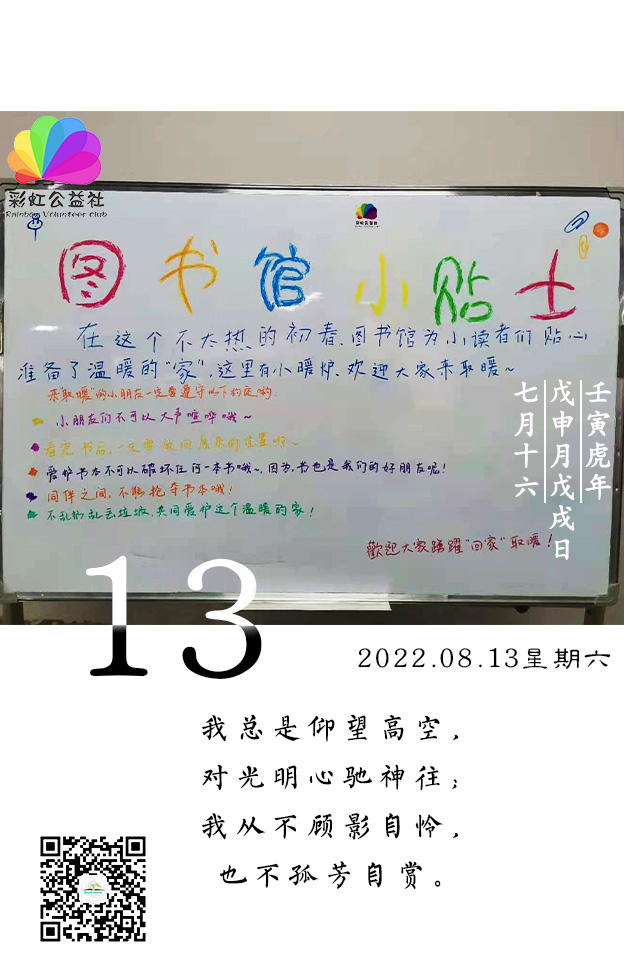 彩虹公益社
Rainbow Volunteer club
彩虹公益社
图书馆小贴士
在这个不太热的初春、图书馆为小读者们贴心
准备了温暖的“家”,这里有小暖炉、欢迎大家来取暖~
来取暖的小朋友一定要遵守以下约定哟:
小朋友们不可以大声喧哗哦~
看完书后,一定要放回原来的位置哟~
爱护书本不可以破坏任何一本书哦~,因为,书也是我们的好朋友呢!
同伴之间,不能抢夺书本哦!
不乱扔乱丢垃圾,共同爱护这个温暖的家!
歡迎大家踴躍“回家”取暖!
壬寅虎年
戊申月戊戌日
七月十六
13
2022.08.13星期六
我总是仰望高空,
对光明心驰神往;
我从不顾影自怜,
也不孤芳自赏。